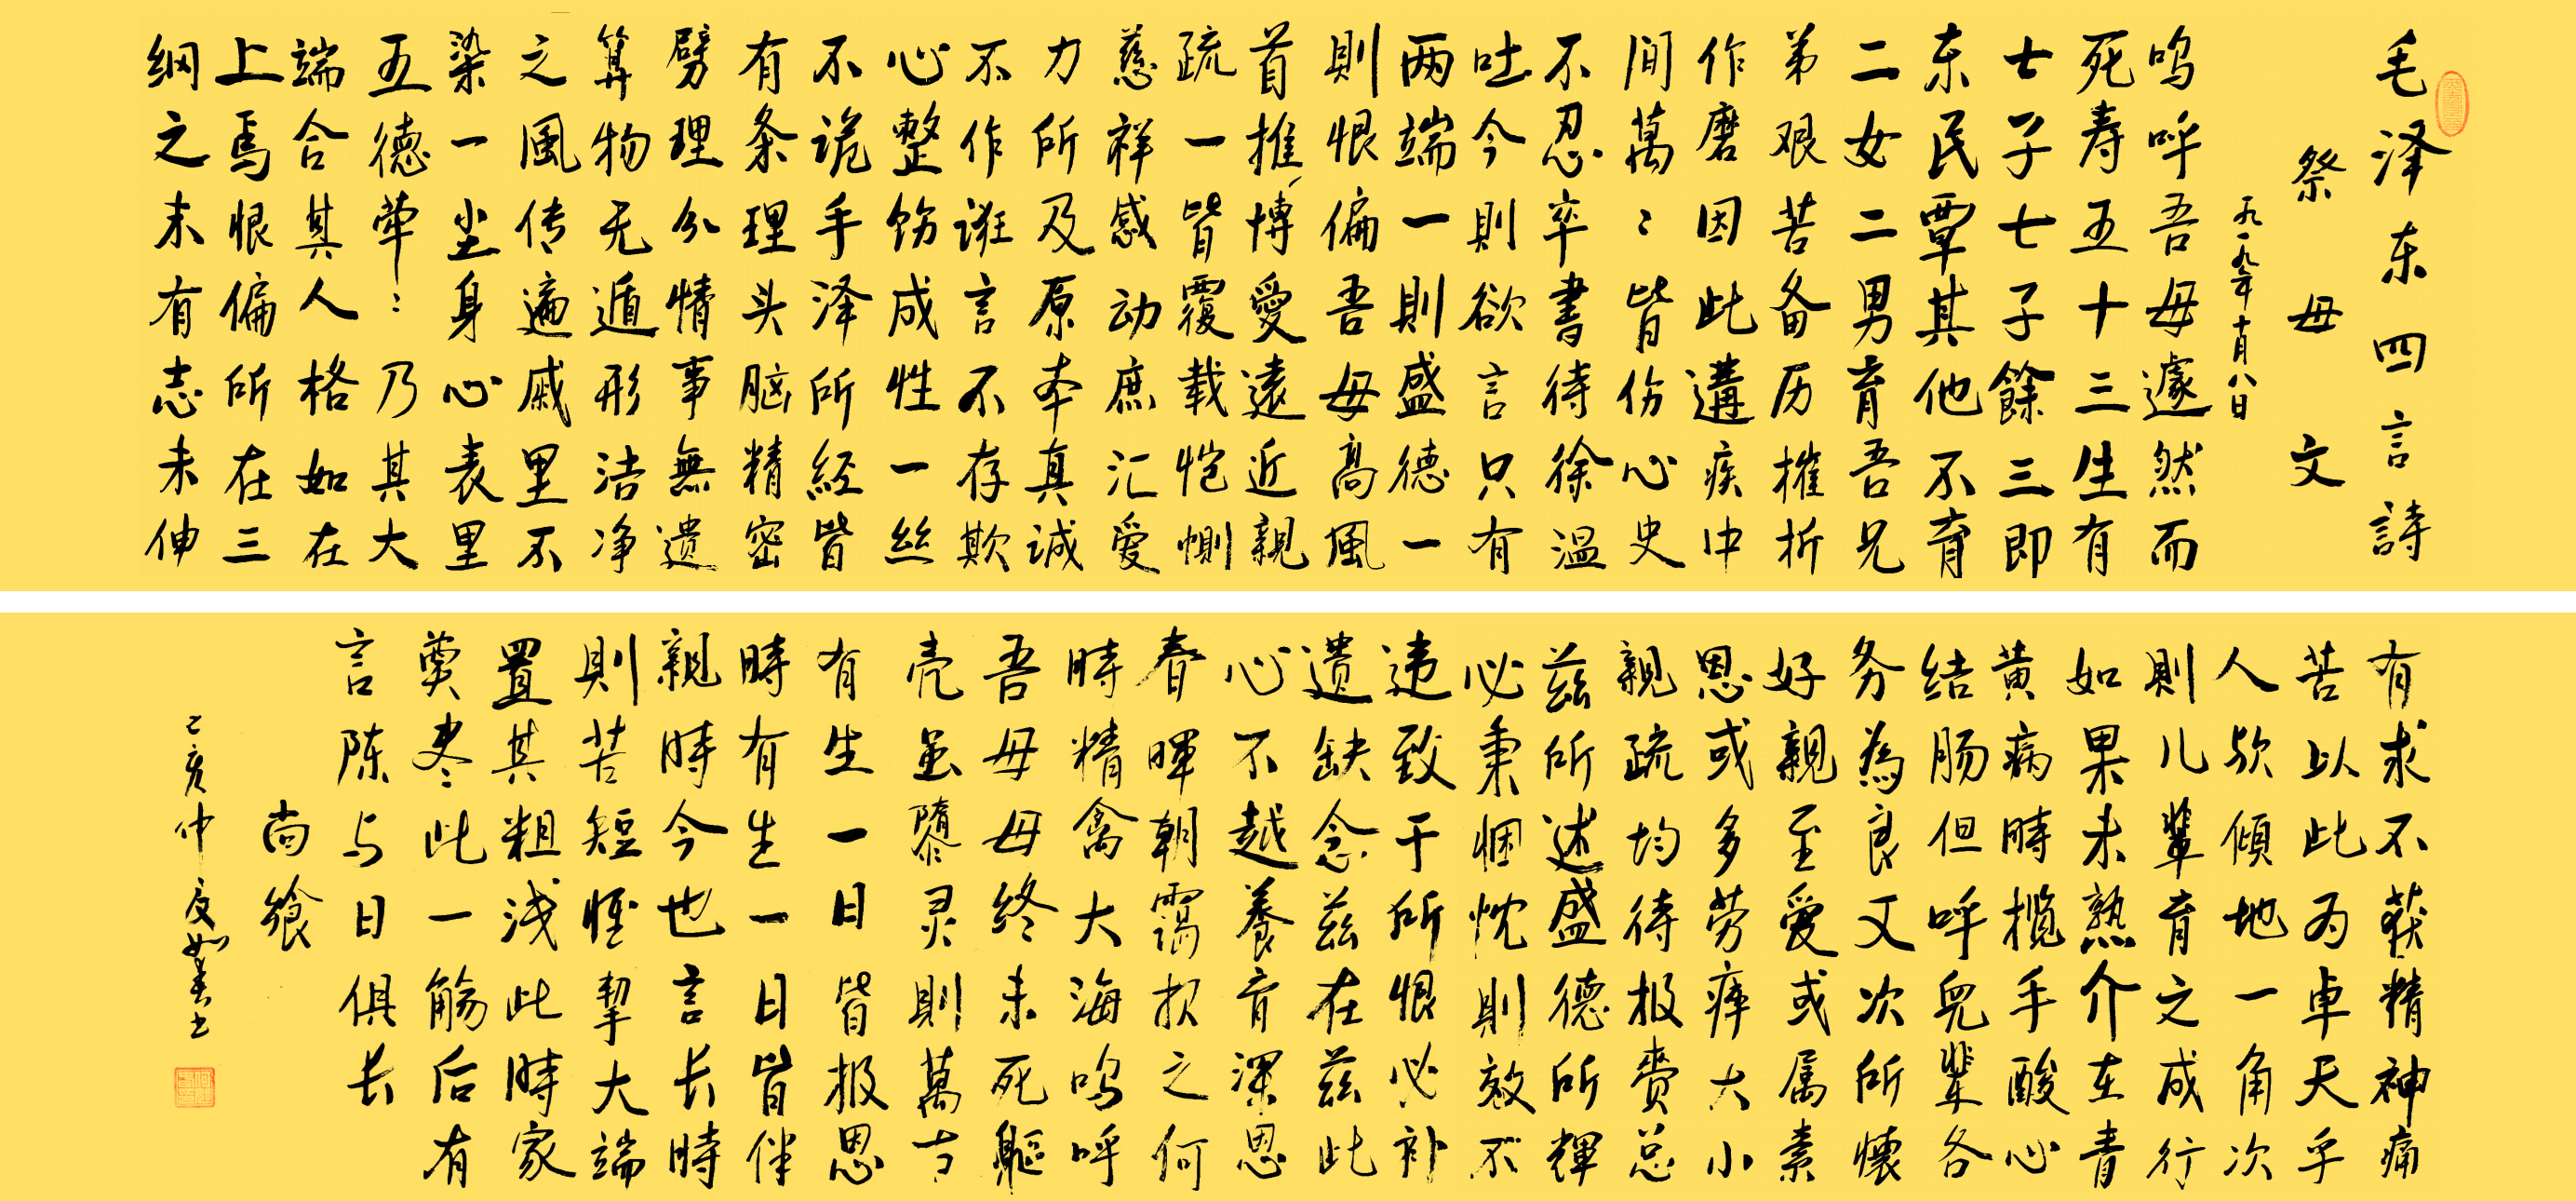 毛泽东四言詩
祭母文
一九一九年十月八日
呜呼吾母遽然而
死寿五十三生有
七子七子餘三即
东民覃其他不育
二女二男育吾兄
弟艰苦备历摧折
作磨因此遘疾中
间萬〻皆伤心史
不忍卒書待徐温
吐今則欲言只有
两端一則盛德一
則恨偏吾母高風
首推博愛遠近親
疏一皆覆载恺惻
慈祥感动庶汇爱
力所及原本真诚
不作诳言不存欺
心整饬成性一丝
不诡手泽所经皆
有条理头脑精密
劈理分情事無遗
算物无遁形洁净
之風传遍戚里不
染一尘身心表里
五德荦〻乃其大
端合其人格如在
上焉恨偏所在三
纲之末有志未伸
有求不获精神痛
苦以此为卓天乎
人欤倾地一角次
則儿辈育之成行
如果未熟介在青
黄病時揽手酸心
结肠但呼兒辈各
务為良又次所懷
好親至爱或属素
恩或多劳瘁大小
親疏均待报赉总
兹所述盛德所輝
必秉悃忱則效不
违致于所恨必补
遗缺念兹在兹此
心不越養育深恩
春暉朝靄报之何
時精禽大海呜呼
吾母母终未死躯
壳虽隳灵則萬古
有生一日皆报恩
時有生一日皆伴
親時今也言长時
則苦短惟挈大端
置其粗浅此時家
奠尽此一觞后有
言陈与日俱长
尚飨
己亥仲夏